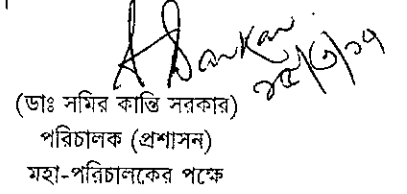 A Sarkar
২৫/৩/১৭
(ডাঃ সমির কান্তি সরকার)
পরিচালক (প্রশাসন)
মহা-পরিচালকের পক্ষে